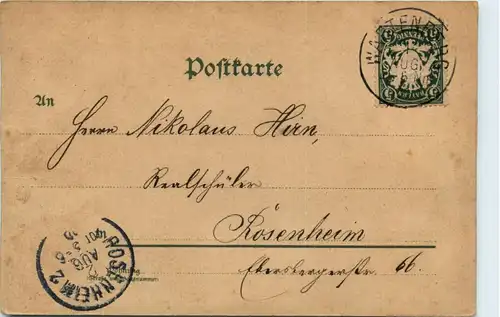 WARTENBERG
AUG
Postkarte
An
Herrn Nikolaus Hirn,
Realschüler
Rosenheim
Ebersbergerstr. 66.
ROSENHEIM 2
AUG
Vor